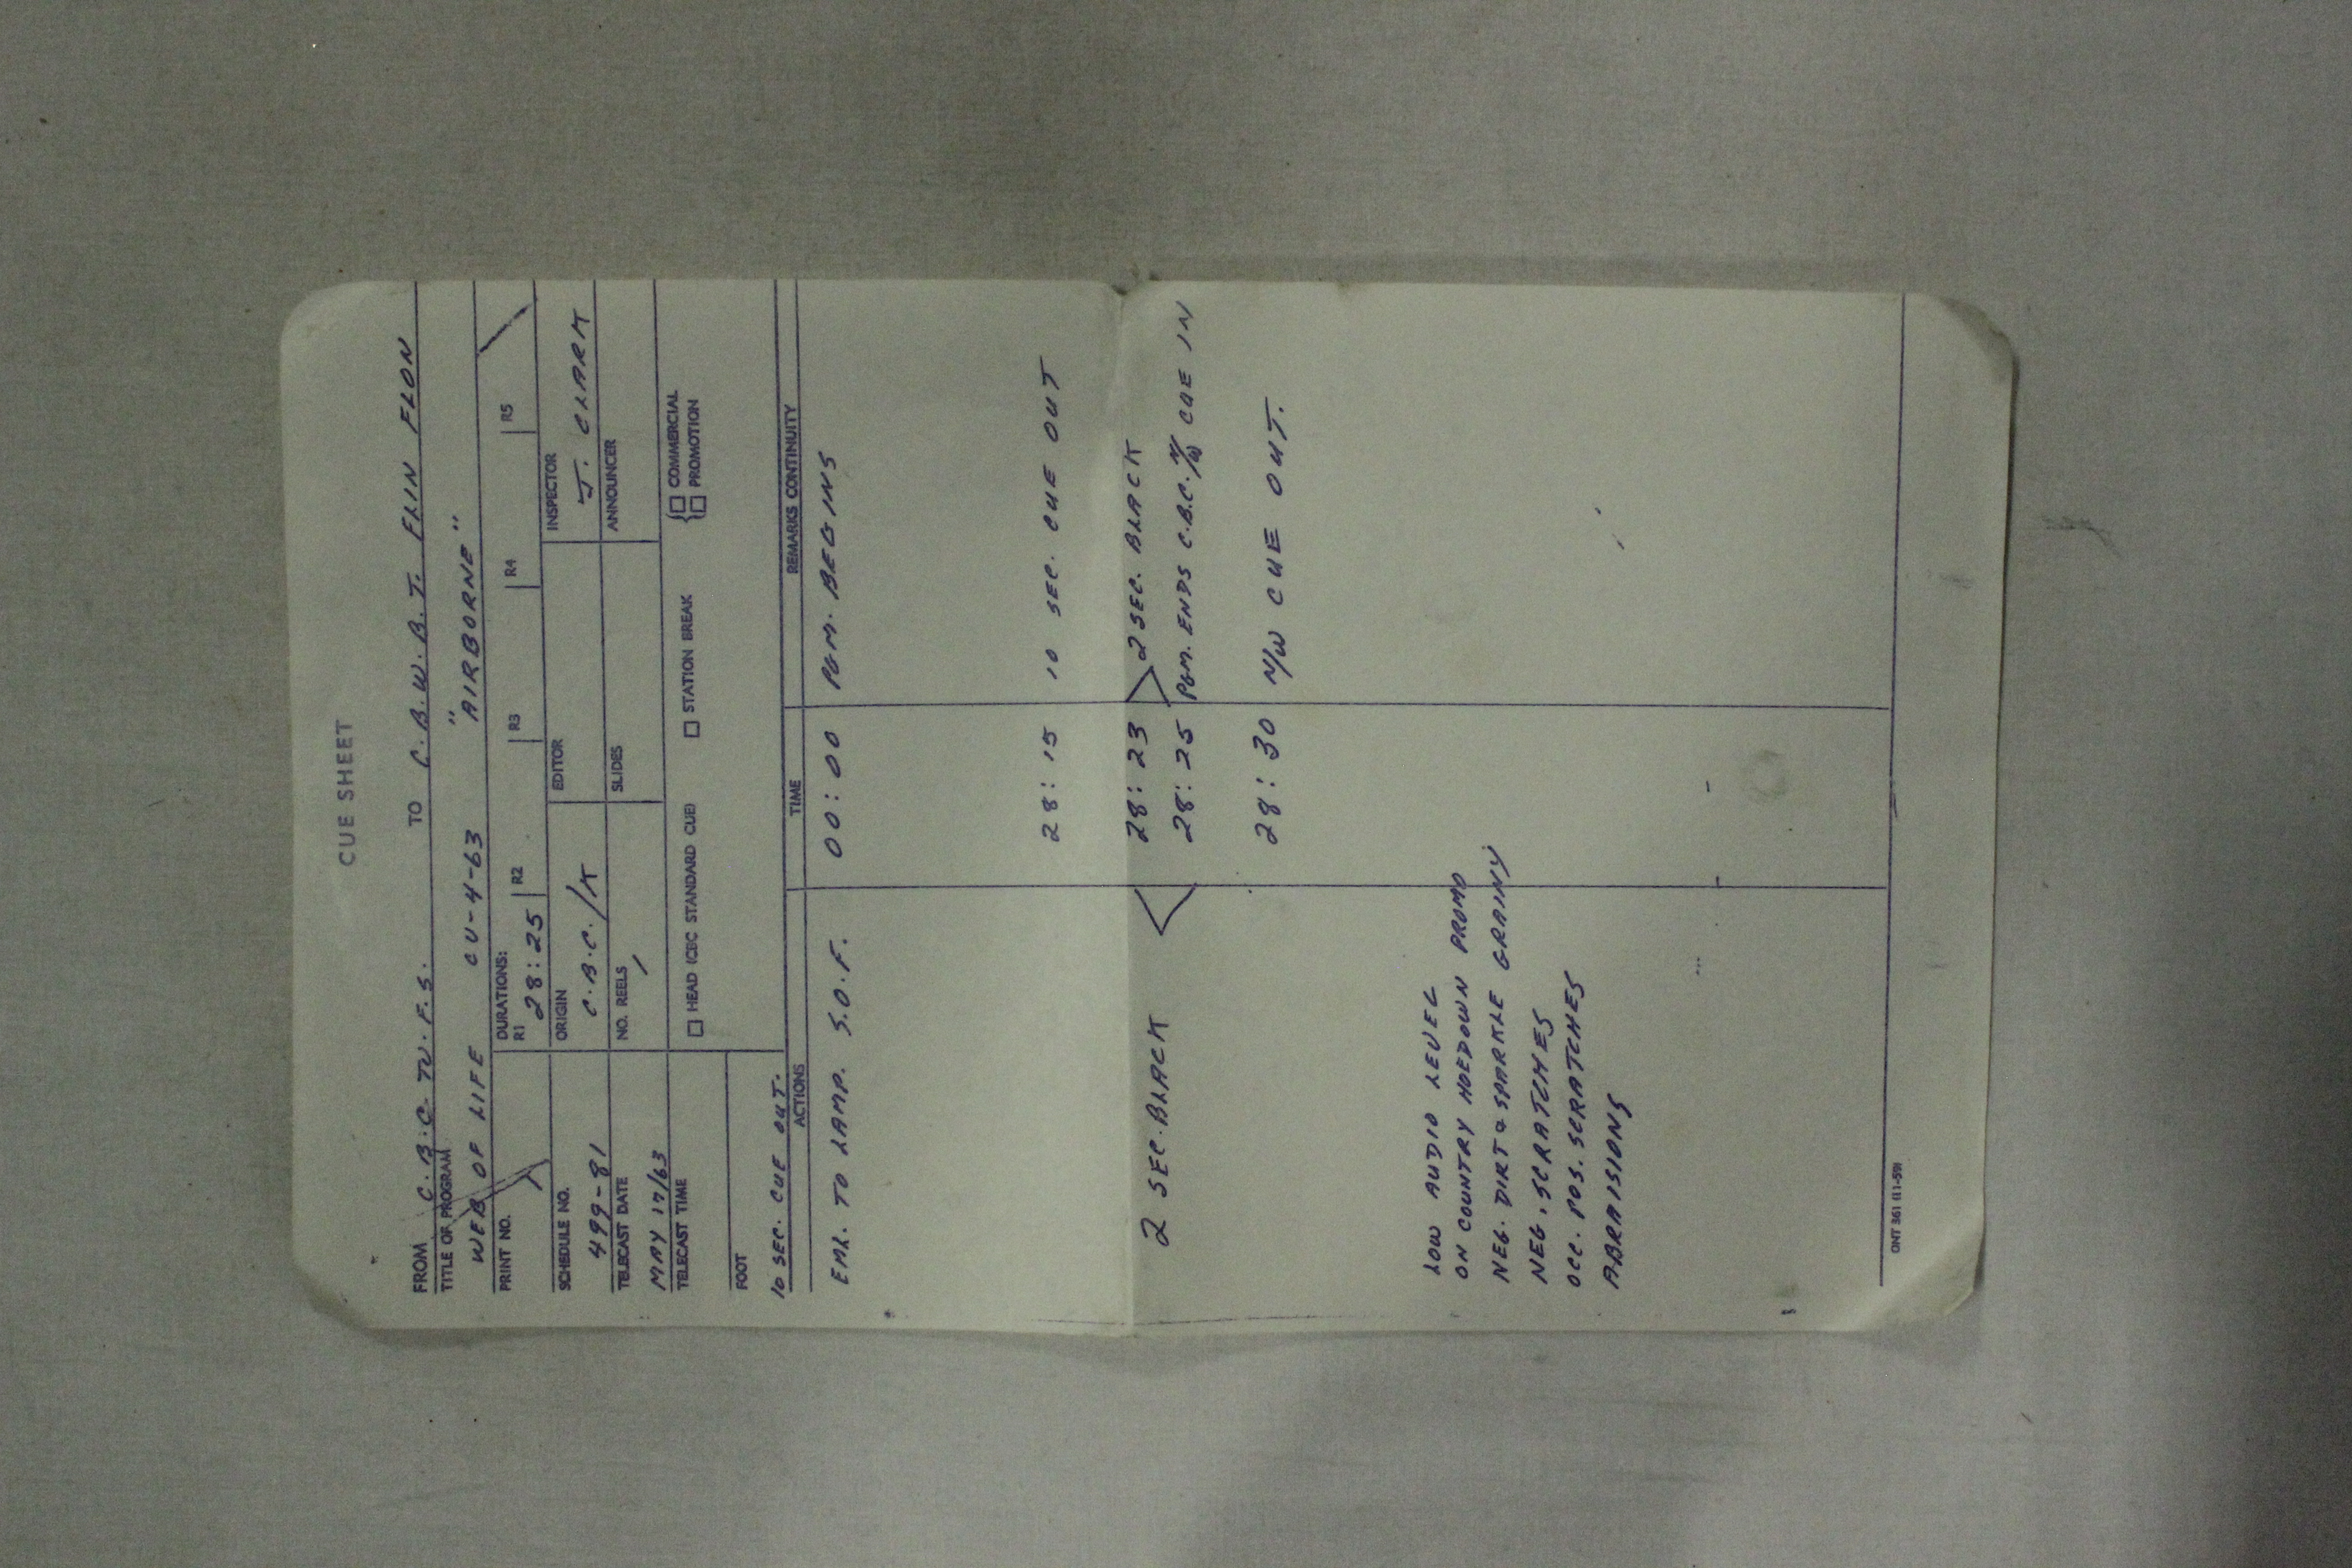 CUE SHEET
FROM C.B.C. TV. F.S. TO C.B.W.B.T. FLIN FLON
TITLE OF PROGRAM
WEB OF LIFE CU-4-63 "AIRBORNE"
PRINT NO. DURATIONS:
R1 28:25 R2 R3 R4 R5
SCHEDULE NO. 499-81 ORIGIN C.B.C./K EDITOR INSPECTOR J. CLARK
TELECAST DATE MAY 17/63 NO. REELS 1 SLIDES ANNOUNCER
TELECAST TIME
□ HEAD (CBC STANDARD CUE) □ STATION BREAK {□ COMMERCIAL
□ PROMOTION
FOOT
10 SEC. CUE OUT.
ACTIONS TIME REMARKS CONTINUITY
EML. TO LAMP. S.O.F. 00:00 PGM. BEGINS
28:15 10 SEC. CUE OUT
28:23 > 2 SEC. BLACK
2 SEC. BLACK <
28:25 PGM. ENDS C.B.C. N/W CUE IN
28:30 N/W CUE OUT.
LOW AUDIO LEVEL
ON COUNTRY HOEDOWN PROMO
NEG. DIRT & SPARKLE GRAINY
NEG. SCRATCHES
OCC. POS. SCRATCHES
ABRAISIONS
ONT 361 (11-59)